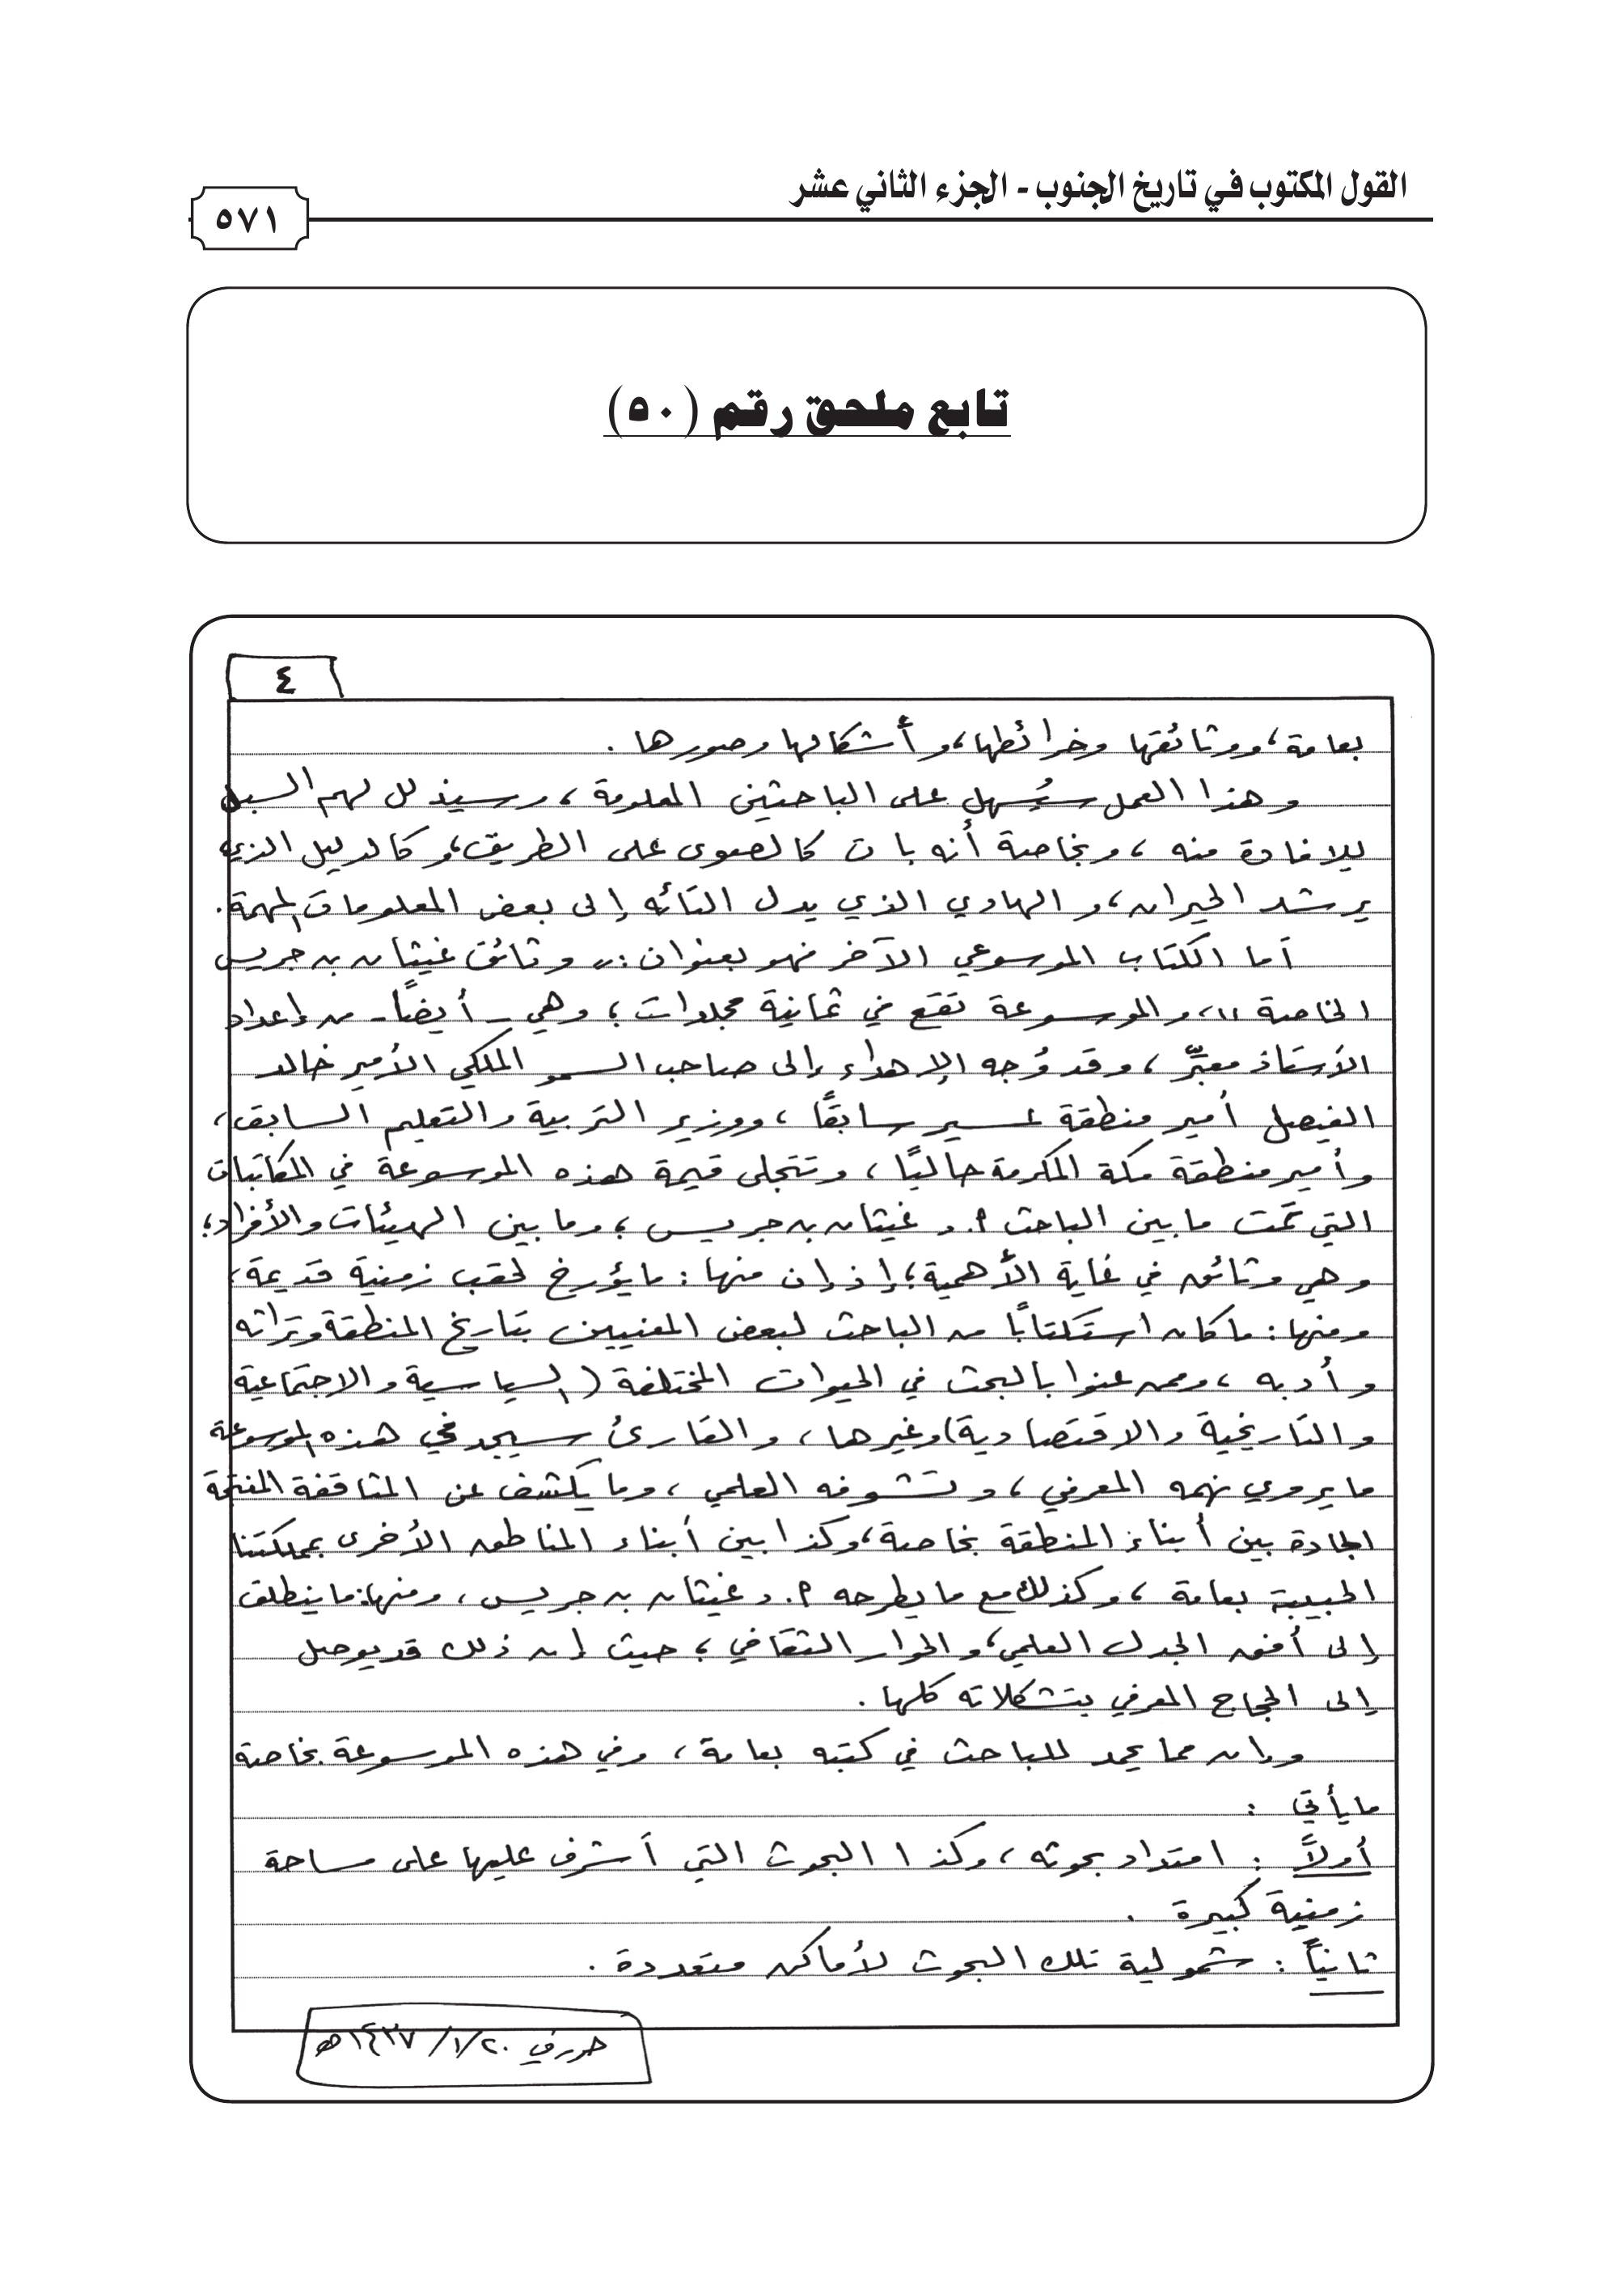 القول المكتوب في تاريخ الجنوب - الجزء الثاني عشر
٥٧١
تابع ملحق رقم (٥٠)
٤
بعامة، ووثائقها وخرائطها، وأشكالها وصورها .
وهذا العمل سيُسهل على الباحثين المعلومة ، وسيذلل لهم السبل
للإفادة منه ، وبخاصة أنه بات كالصوى على الطريق، وكالدليل الذي
يرشد الحيران، و الهادي الذي يدل التائه إلى بعض المعلومات المهمة.
أما الكتاب الموسوعي الآخر فهو بعنوان : " وثائق غيثان بن جريس
الخاصة "، والموسوعة تقع في ثمانية مجلدات ؛ وهي - أيضاً - من إعداد
الأستاذ معبِّر ، وقد وُجه الإهداء إلى صاحب السمو الملكي الأمير خالد
الفيصل أمير منطقة عسير سابقًا ، ووزير التربية والتعليم السابق ،
وأمير منطقة مكة المكرمة حاليًا ، وتتجلى قيمة هذه الموسوعة في المكاتبات
التي تمت ما بين الباحث أ. د غيثان بن جريس ؛ وما بين الهيئات والأفراد؛
وهي وثائق في غاية الأهمية؛ إذ إن منها : ما يؤرخ لحقب زمنية قديمة،
ومنها : ما كان استكتابًا من الباحث لبعض المعنيين بتاريخ المنطقة وتراثه
وأدبه ، وممن عنوا بالبحث في الحيوات المختلفة ( السياسية والاجتماعية
والتاريخية والاقتصادية) وغيرها ، والقارئ سيجد في هذه الموسوعة
ما يروي نهمه المعرفي ، وتشوفه العلمي ، وما يكشف عن المثاقفة المنتجة
الجادة بين أبناء المنطقة بخاصة، وكذا بين أبناء المناطق الأخرى بمملكتنا
الحبيبة بعامة ، وكذلك مع ما يطرحه أ. د غيثان بن جريس ، ومنها: ما ينطلق
إلى أفق الجدل العلمي، والحوار الثقافي ؛ حيث إن ذلك قد يوصل
إلى الحجاج المعرفي بتشكلاته كلها .
وإن مما يحمد للباحث في كتبه بعامة ، وفي هذه الموسوعة بخاصة
ما يأتي :
أولاً : امتداد بحوثه ، وكذا البحوث التي أشرف عليها على مساحة
زمنية كبيرة .
ثانياً : شمولية تلك البحوث لأماكن متعددة .
حرر في ٢٠ /١ /١٤٣٧هـ